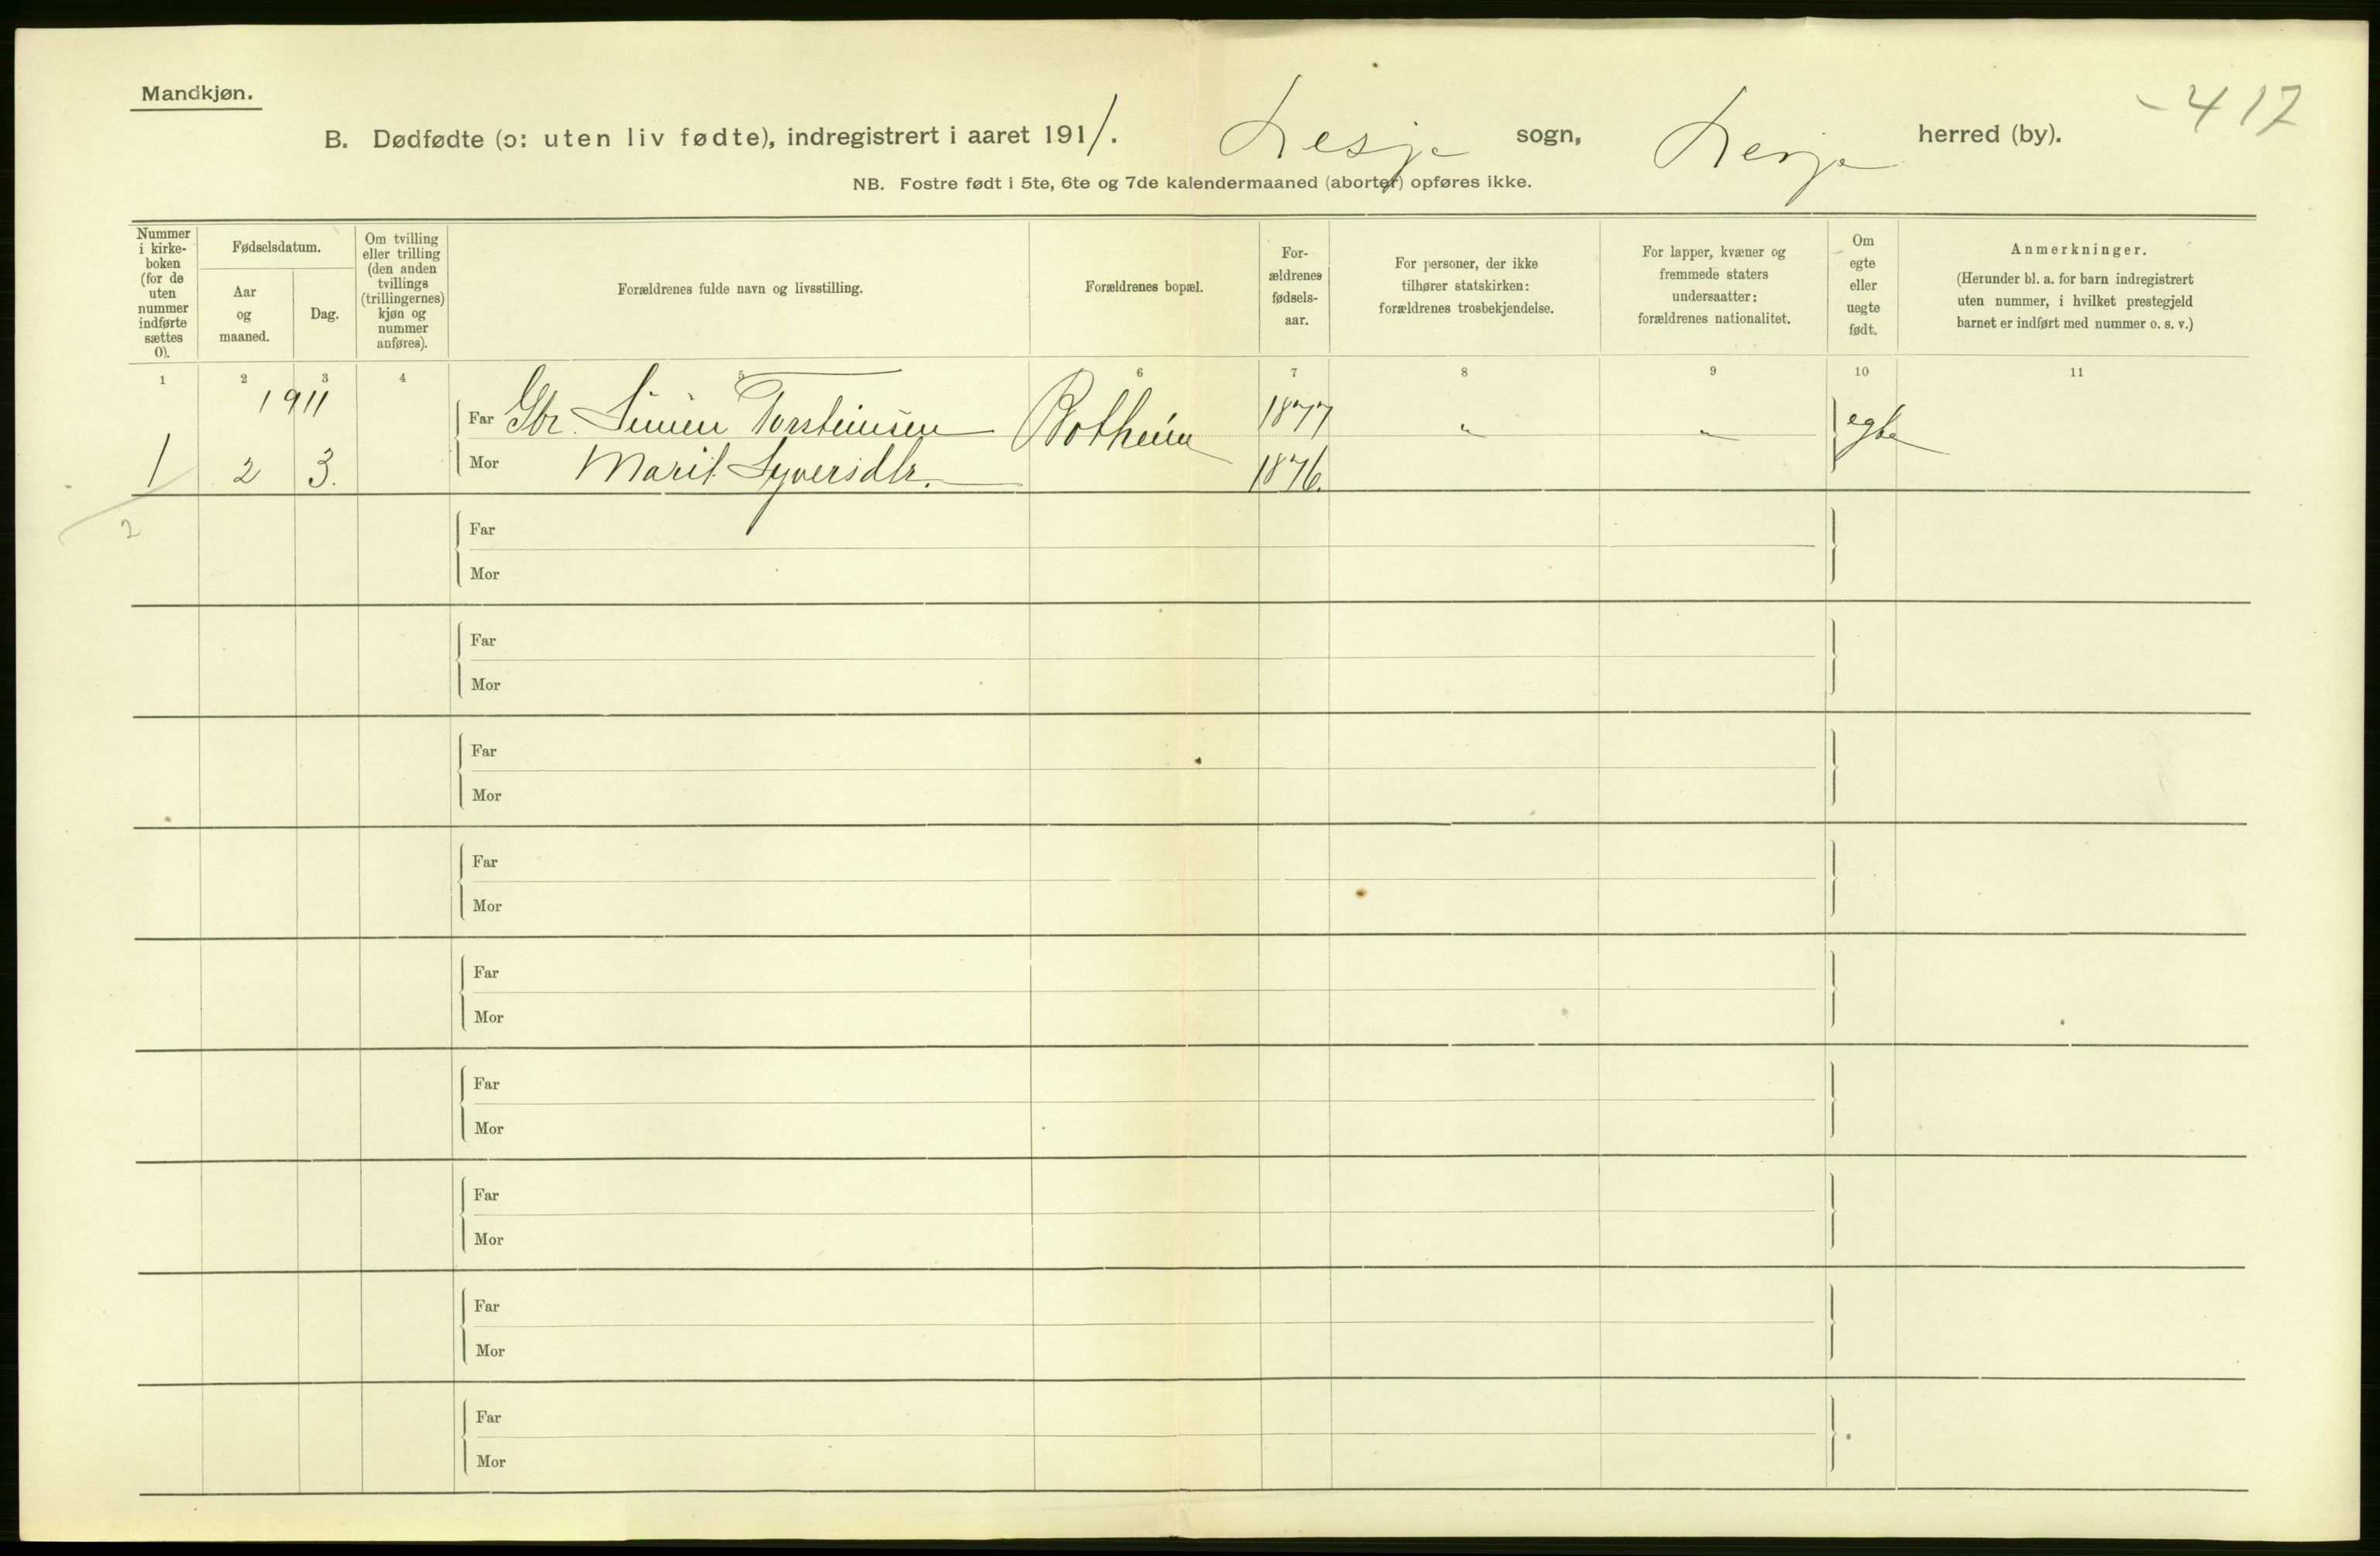 Mandkjøn.
- 417
B. Dødfødte (ɔ: uten liv fødte), indregistrert i aaret 1911. Lesje sogn, Lesje herred (by).
NB. Fostre født i 5te, 6te og 7de kalendermaaned (aborter) opføres ikke.
Nummer i kirke-boken (for de uten nummer indførte sættes 0).
Fødselsdatum.
Aar og maaned.
Dag.
Om tvilling eller trilling (den anden tvillings (trillingernes) kjøn og nummer anføres).
Forældrenes fulde navn og livsstilling.
Forældrenes bopæl.
For-ældrenes fødsels-aar.
For personer, der ikke tilhører statskirken: forældrenes trosbekjendelse.
For lapper, kvæner og fremmede staters undersaatter: forældrenes nationalitet.
Om egte eller uegte født.
Anmerkninger.
(Herunder bl. a. for barn indregistrert uten nummer, i hvilket prestegjeld barnet er indført med nummer o. s. v.)
1 2 3 4 5 6 7 8 9 10 11
1911
Far Gbr. Simen Torsteinsen Botheim 1877 " " egte
1 2 3. Mor Marit Syversdtr. 1876.
2
Far
Mor
Far
Mor
Far
Mor
Far
Mor
Far
Mor
Far
Mor
Far
Mor
Far
Mor
Far
Mor